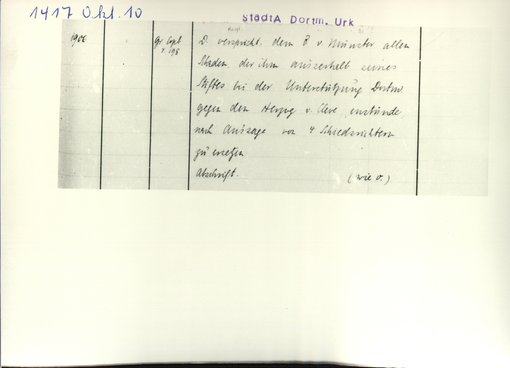 1417 Okt. 10
StadtA Dortm. Urk
1906
D. verspricht dem B. v. Münster allen
Schaden, der ihm ausserhalb seines
Stiftes bei der Unterstützung Dortm.
gegen den Herzog v. Cleve entstünde
nach Aussage von 4 Schiedsrichtern
zu ersetzen
Abschrift. (wie o.)